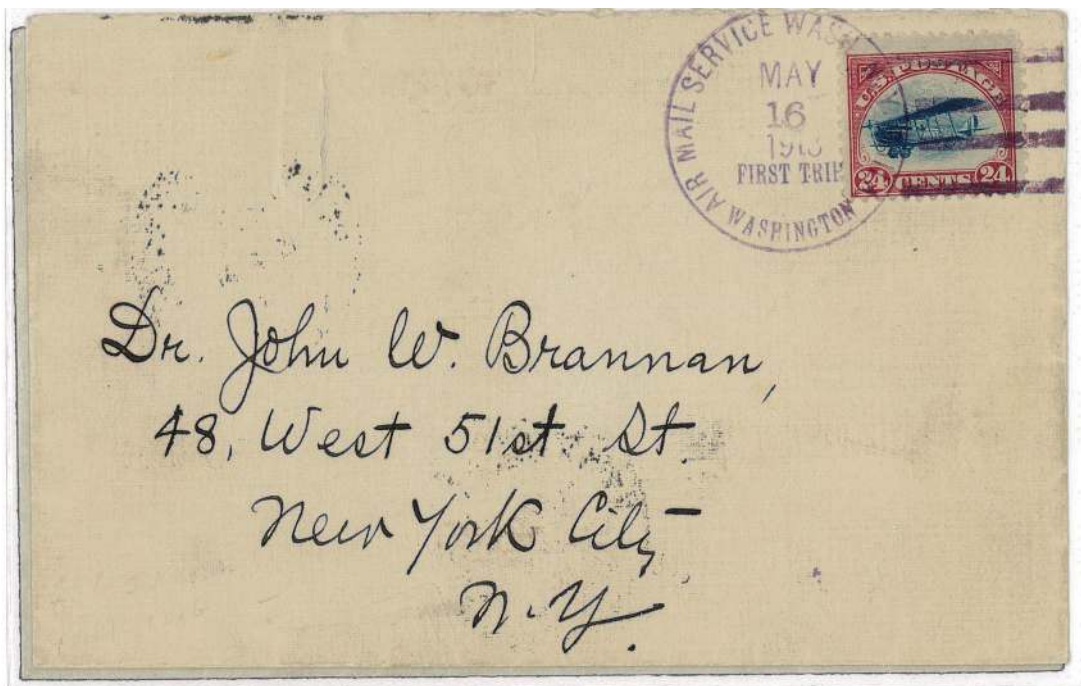 AIR MAIL SERVICE WASH
MAY
16
1918
FIRST TRIP
WASHINGTON
U.S. POSTAGE
24 CENTS 24
Dr. John W. Brannan,
48, West 51st St.
New York City
N.Y.